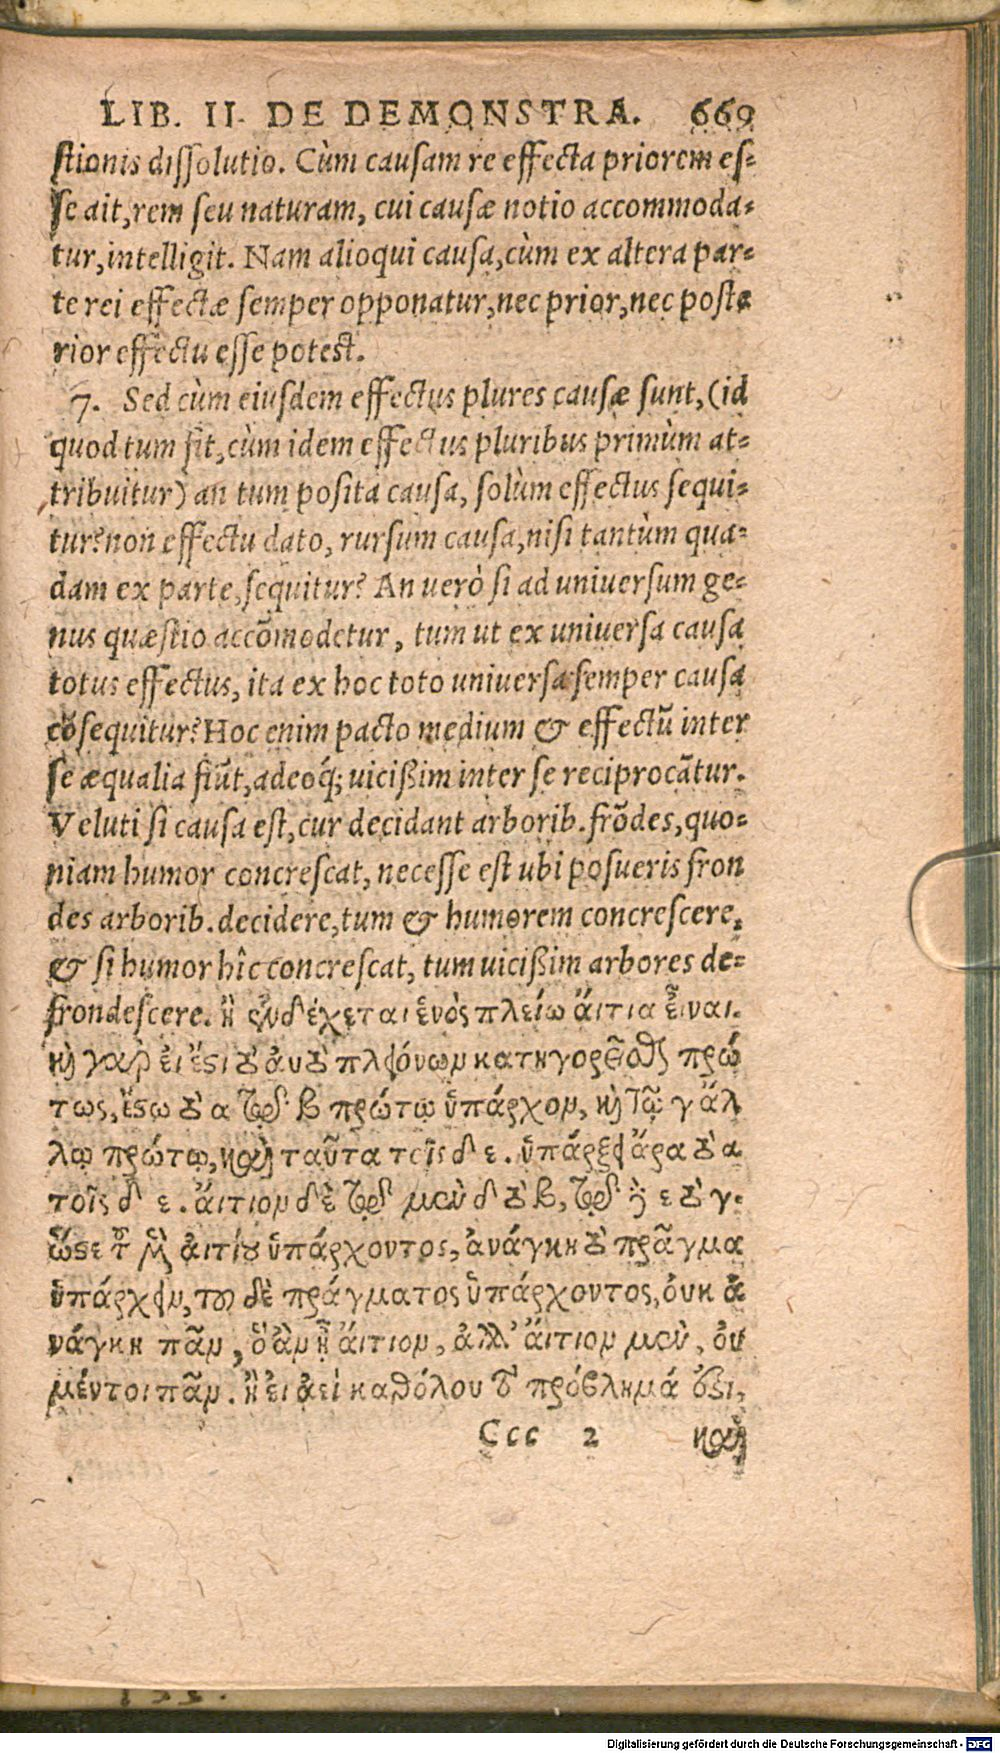 LIB. II. DE DEMONSTRA. 669
ſtionis diſſolutio. Cùm cauſam re effecta priorem eſ=
ſe ait, rem ſeu naturam, cui cauſæ notio accommoda=
tur, intelligit. Nam alioqui cauſa, cùm ex altera par=
te rei effectæ ſemper opponatur, nec prior, nec poſte
rior effectu eſſe poteſt.
7. Sed cùm eiuſdem effectus plures cauſæ ſunt, (id
quod tum fit, cùm idem effectus pluribus primùm at=
tribuitur) an tum poſita cauſa, ſolùm effectus ſequi=
tur? non effectu dato, rurſum cauſa, niſi tantùm qua=
dam ex parte, ſequitur? An verò ſi ad uniuerſum ge=
nus quæſtio accõmodetur, tum ut ex uniuerſa cauſa
totus effectus, ita ex hoc toto uniuerſa ſemper cauſa
cõſequitur? Hoc enim pacto medium & effectũ inter
ſe æqualia fiũt, adeoq́; uiciſſim inter ſe reciprocãtur.
Veluti ſi cauſa eſt, cur decidant arborib. frõdes, quo=
niam humor concreſcat, neceſſe eſt ubi poſueris fron
des arborib. decidere, tum & humorem concreſcere,
& ſi humor hîc concreſcat, tum uiciſſim arbores de=
frondeſcere. ἢ οὐκ ἐνδέχεται ἑνὸς πλείω ἄιτια εἶναι.
καὶ γὰρ εἰ ἔϛι τὸ ἀυτὸ πλειόνων κατηγορεῖσθαι πρώ
τως, ἔϛω τὸ α τῷ β πρώτῳ ὑπάρχον, καὶ τῷ γ ἄλ
λῳ πρώτῳ, καὶ ταῦτα τοῖς δ ε. ὑπάρξει ἄρα τὸ α
τοῖς δ ε. ἄιτιον δὲ τῷ μὲν δ τὸ β, τῷ δὲ ε τὸ γ.
ὥϛε τοῦ μὲν ἀιτίου ὑπάρχοντος, ἀνάγκη τὸ πρᾶγμα
ὑπάρχειν, τοῦ δὲ πράγματος ὑπάρχοντος, ὀυκ ἀ
νάγκη πᾶν, ὃ ἂν ᾖ ἄιτιον, ἀλλ' ἄιτιον μὲν, ὀυ
μέντοι πᾶν. ἢ ἐι ἀεὶ καθόλου τὸ πρόβλημά ἐϛι,
Ccc 2 καὶ
Digitalisierung gefördert durch die Deutsche Forschungsgemeinschaft - DFG